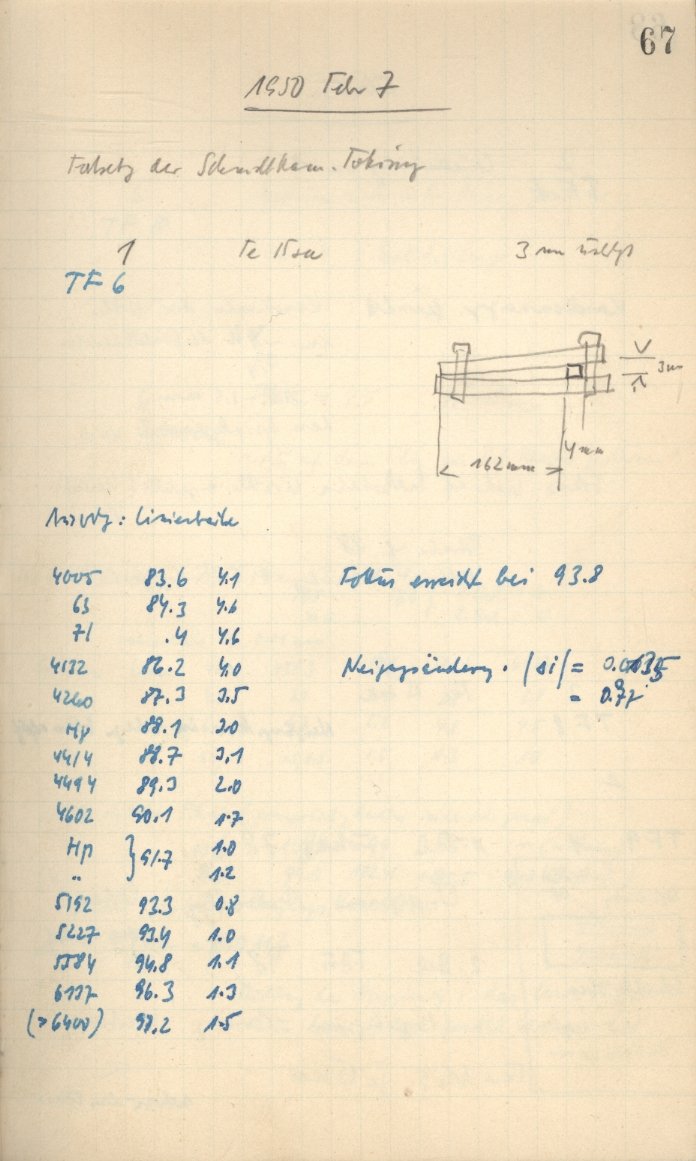 67
1950 Febr 7
der Schmidtkam.
1
TF 6
3 mm
3 mm
4 mm
162 mm
: Linienbreite
4005 83.6 4.1
63 84.3 4.6
71 .4 4.6
4132 86.2 4.0
4260 87.3 3.5
Hγ 88.1 3.0
4414 88.7 3.1
4494 89.3 2.0
4602 90.1 1.7
Hβ } 91.7 1.0
" 1.2
5192 93.3 0.8
5227 93.4 1.0
5584 94.8 1.1
6137 96.3 1.3
(>6400) 98.2 1.5
Fokus erreicht bei 93.8
Neigungsänderung. |Δi| =
= 0.77